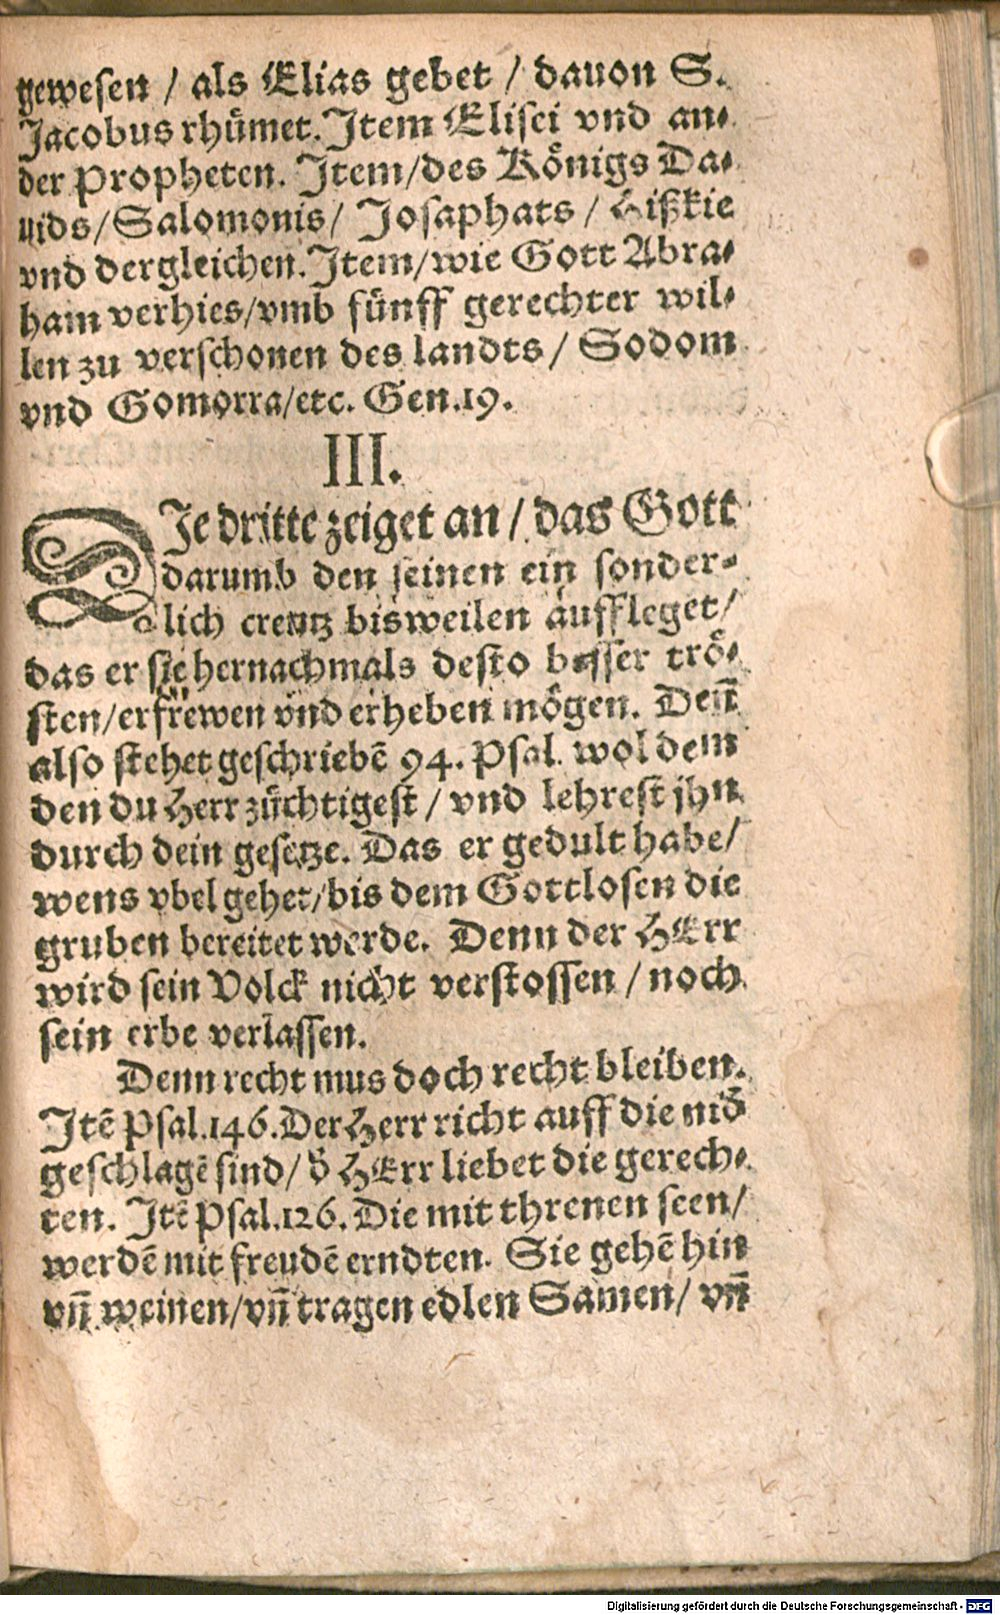 gewesen / als Elias gebet / dauon S.
Jacobus rhümet. Item Elisei vnd an⸗
der Propheten. Item/des Königs Da⸗
uids/Salomonis/ Josaphats / Hißkie
vnd dergleichen. Item/wie Gott Abra⸗
ham verhies/vmb fünff gerechter wil⸗
len zu verschonen des landts/ Sodom
vnd Gomorra/etc. Gen.19.
III.
DIe dritte zeiget an / das Gott
darumb den seinen ein sonder⸗
lich creutz bisweilen aufflegt/
das er sie hernachmals desto besser trö⸗
sten/erfrewen vnd erheben mögen. Deñ
also stehet geschriebē 94. Psal. wol dem
den du Herr züchtigest / vnd lehrest jhn
durch dein gesetze. Das er gedult habe/
wens vbel gehet/bis dem Gottlosen die
gruben bereitet werde. Denn der HErr
wird sein Volck nicht verstossen / noch
sein erbe verlassen.
Denn recht mus doch recht bleiben.
Itē Psal.146. Der Herr richt auff die nid̄
geschlagē sind/ d̄ HErr liebet die gerech⸗
ten. Itē Psal.126. Die mit threnen seen/
werdē mit freudē erndten. Sie gehē hin
vñ weinen/vñ tragen edlen Samen/ vñ
Digitalisierung gefördert durch die Deutsche Forschungsgemeinschaft - DFG